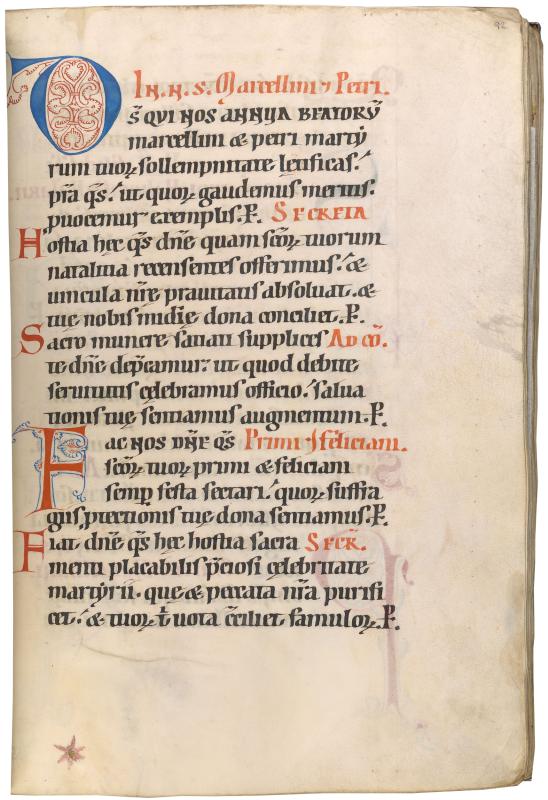 92
IN. N. S. Marcellini ⁊ Petri.
DS̄ QUI NOS ANNUA BEATORŪ
marcellini & petri martẏ
rum tuoꝝ sollempnitate letificas:
p̄ta q̄s. ut quoꝝ gaudemus meritis:
ꝓuocemur exemplis. P̄. SECRETA
Hostia hec q̄s dn̄e quam sc̄oꝝ tuorum
natalitia recensentes offerimus: &
uincula nr̄e prauitatis absoluat. &
tue nobis mīdie dona conciliet. P̄.
Sacro munere satiati supplices AD CŌ.
te dn̄e dep̄camur: ut quod debite
seruitutis celebramus officio: salua
tionis tue sentiamus augmentum. P̄.
FAC NOS DN̄E Q̄S Primi ⁊ feliciani.
sc̄oꝝ tuoꝝ primi & feliciani
semp̱ festa sectari: quoꝝ suffra
giis, ꝓtectionis tue dona sentiamus. P̄.
Fiat dn̄e q̄s hec hostia sacra SECR̄.
menti placabilis p̄ciosi celebritate
martẏrii. que & peccata nr̄a purifi
cet: & tuoꝝ t̄ uota c̄ciliet famuloꝝ. P̄.